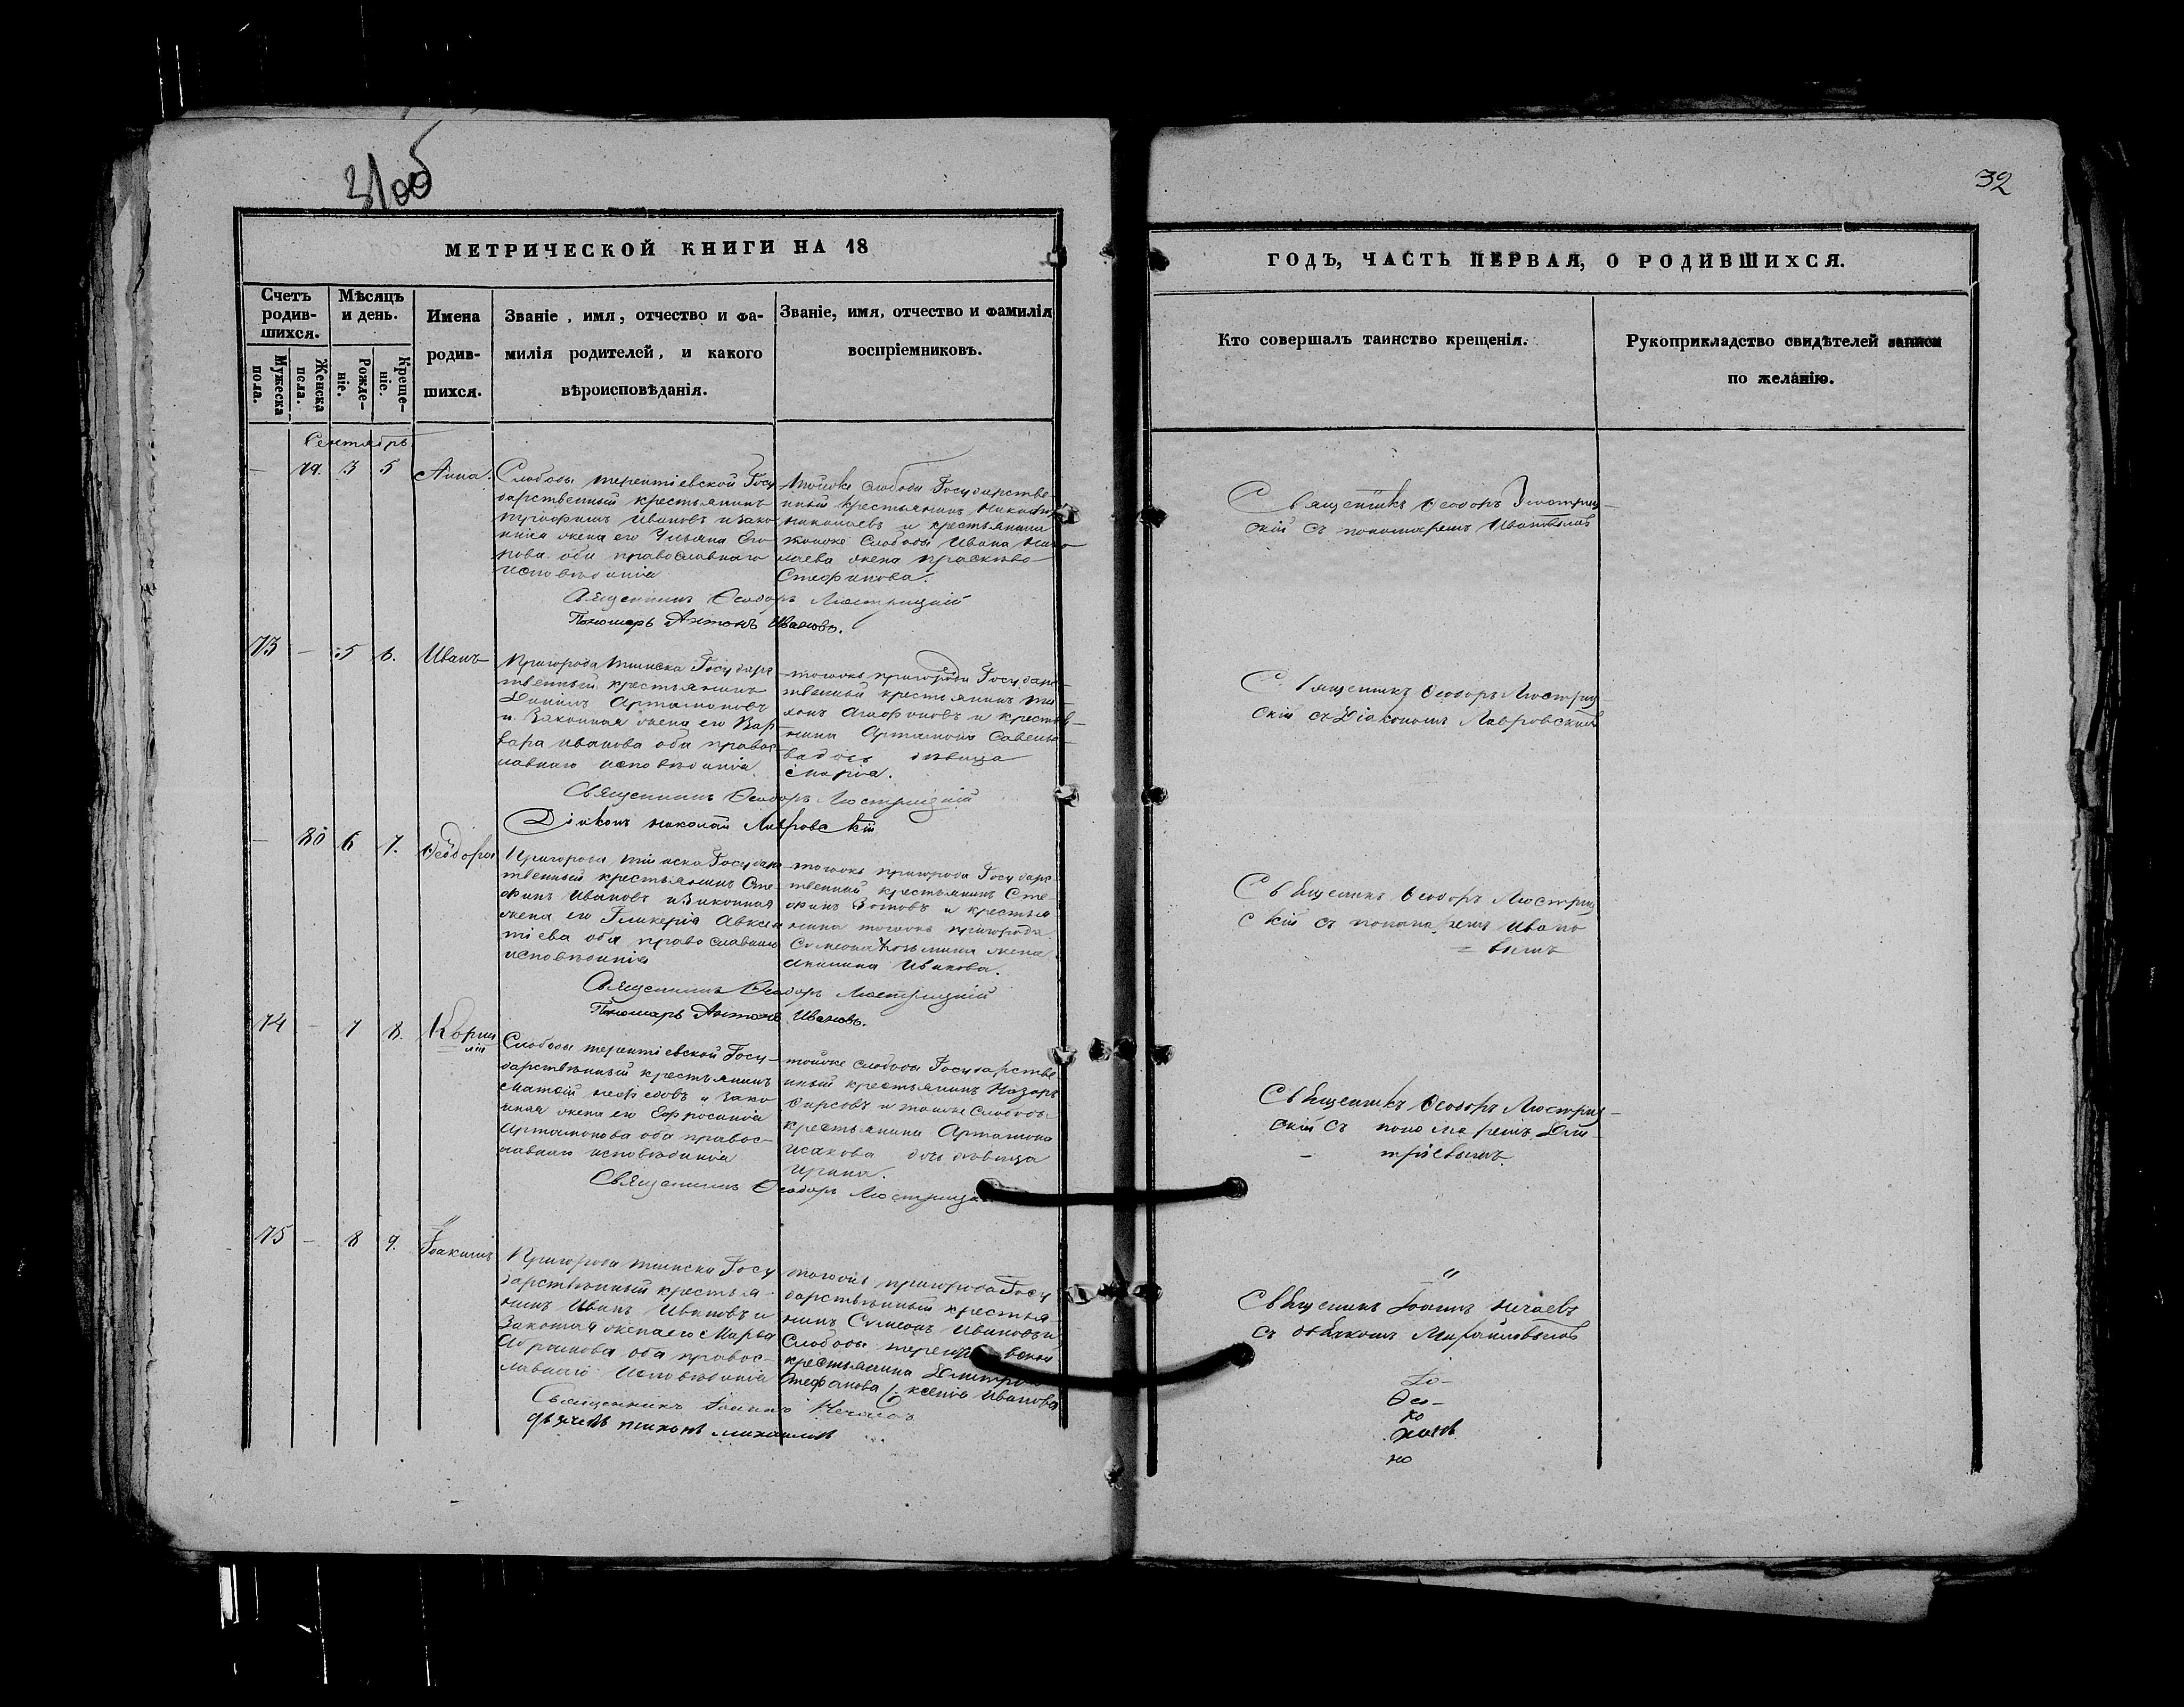 31об
32
МЕТРИЧЕСКОЙ КНИГИ НА 18
ГОДЪ, ЧАСТЬ ПЕРВАЯ, О РОДИВШИХСЯ.
Счетъ родив-шихся.
Мужеска пола.
Женска пола.
Мѣсяцъ и день.
Рожде-ніе.
Креще-ніе.
Имена родив-шихся.
Званіе, имя, отчество и фа-
милія родителей, и какого
вѣроисповѣданія.
Званіе, имя, отчество и фамилія
воспріемниковъ.
Кто совершалъ таинство крещенія.
Рукоприкладство свидѣтелей записи
по желанію.
Сентябрь
— 79. 3 5 Анна.
Слободы терентіевской Госу
дарственный крестьянинъ
Ивановъ и зако
нная жена его Ульяна
оба православнаго
исповѣданія
тойже слободы Государстве
нный крестьянинъ
николаевъ и крестьянина
тойже Слободы Ивана Нико
лаева жена
Стефанова.
Священникъ Ѳеодоръ Люстрицкій
Пономарь Антонъ Ивановъ.
Священникъ Ѳеодоръ Люстриц
скій съ пономаремъ Ивановымъ
73 — 5 6. Иванъ
Пригорода тіинска Государс
твенный крестьянинъ
Даніилъ Артамоновъ
и Законная жена его Вар
вара иванова оба правос
лавнаго исповѣданія
тогожъ пригорода Государс
твенный крестьянинъ
и крестья
нина Артамона Савелье
ва дочь дѣвица
Марія.
Священникъ Ѳеодоръ Люстрицкій
Діаконъ николай Лавровскій
Священникъ Ѳеодоръ Люстриц
скій съ Діакономъ Лавровскимъ
— 80 6 7. Ѳеодора
Пригорода тіинска Государс
твенный крестьянинъ Сте
фанъ Ивановъ и Законная
жена его Гликерія Авксен
тіева оба православнаго
исповѣданія
тогожъ пригорода Государс
твенный крестьянинъ Сте
фанъ Зотовъ и крестья
нина тогожъ пригорода
Симеона Козьмина жена
Иванова.
Священникъ Ѳеодоръ Люстрицкій
Пономарь Антонъ Ивановъ.
Священникъ Ѳеодоръ Люстриц
скій съ пономаремъ Ивано
= вымъ
74 — 7 8. Корни
лій
Слободы терентіевской Госу-
дарственный крестьянинъ
Матѳей и Зако
нная жена его Ефросинія
Артамонова оба правос-
лавнаго исповѣданія
тойже слободы Государстве
нный крестьянинъ Назаръ
Фирсовъ и тойже Слободы
крестьянина Артамона
Исакова дочь дѣвица
Ирина.
Священникъ Ѳеодоръ Люстрицкій
Священникъ Ѳеодоръ Люстриц-
скій съ пономаремъ Дми-
- тріевымъ.
75 — 8 9. Іоакимъ
Пригорода тіинска Госу
дарственный крестья-
нинъ Иванъ Ивановъ и
Законная жена его Марья
Абрамова оба правос-
лавнаго Исповѣданія
тогожъ пригорода Госу
дарственный крестья
нинъ Симеонъ Ивановъ и
Слободы терентіевской
крестьянина Дмитрія
Стефанова ксенія Иванова
Священникъ Іоаннъ Нечаевъ
дьячекъ тихонъ михайловъ
Священникъ Іоаннъ Нечаевъ
съ дьячкомъ Михайловымъ